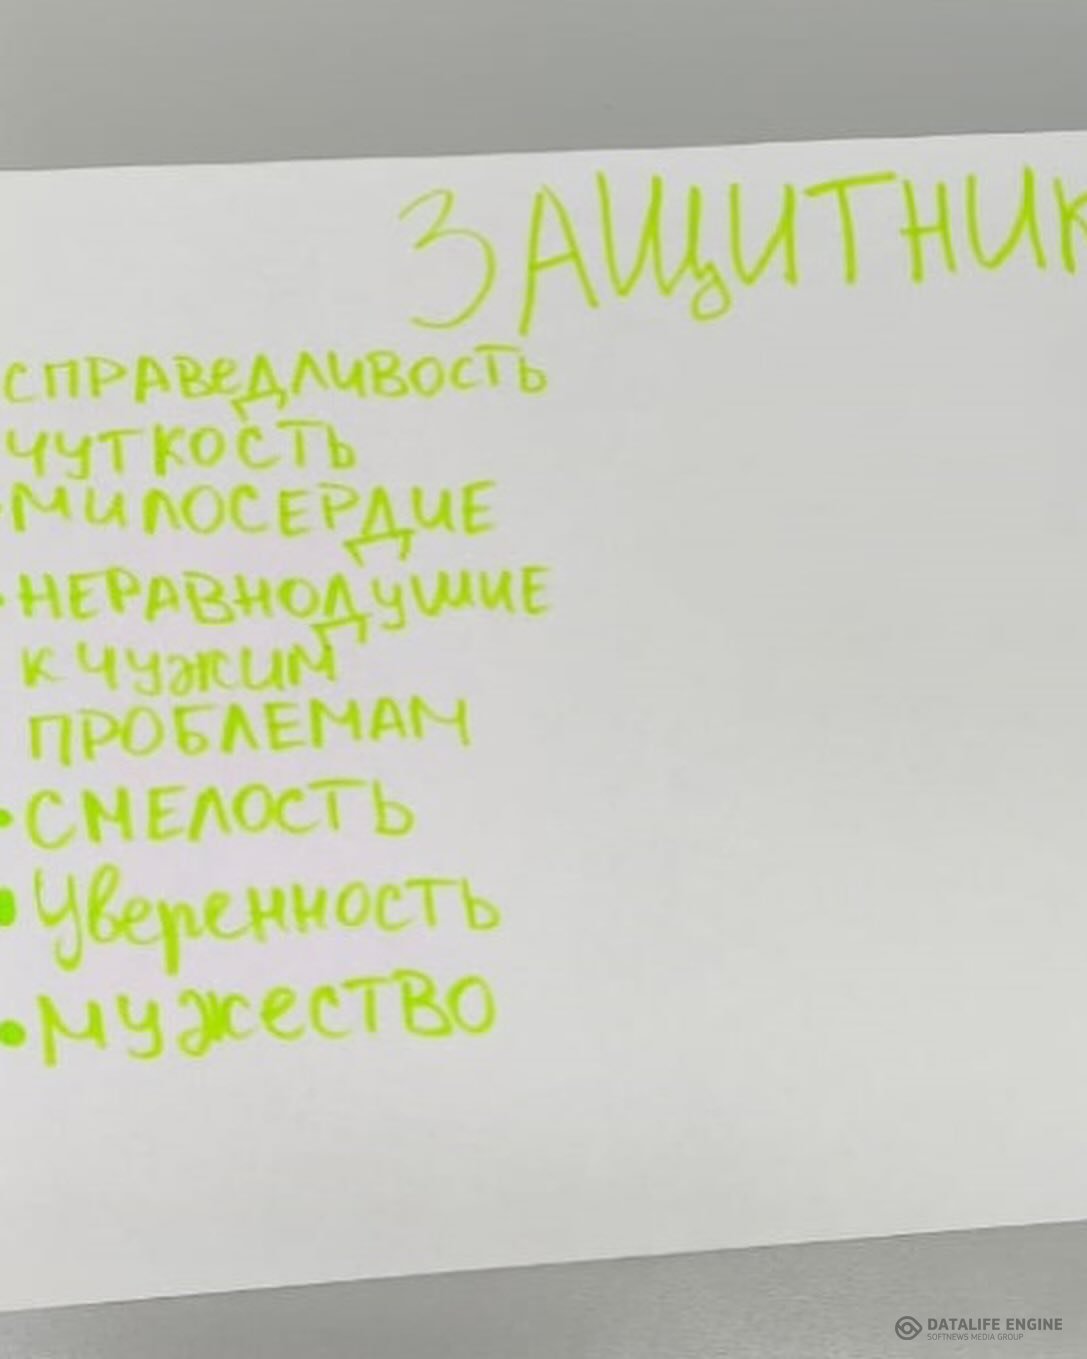 ЗАЩИТНИК
СПРАВЕДЛИВОСТЬ
ЧУТКОСТЬ
• МИЛОСЕРДИЕ
• НЕРАВНОДУШИЕ
К ЧУЖИМ
ПРОБЛЕМАМ
• СМЕЛОСТЬ
• Уверенность
• МУЖЕСТВО
DATALIFE ENGINE
SOFTNEWS MEDIA GROUP